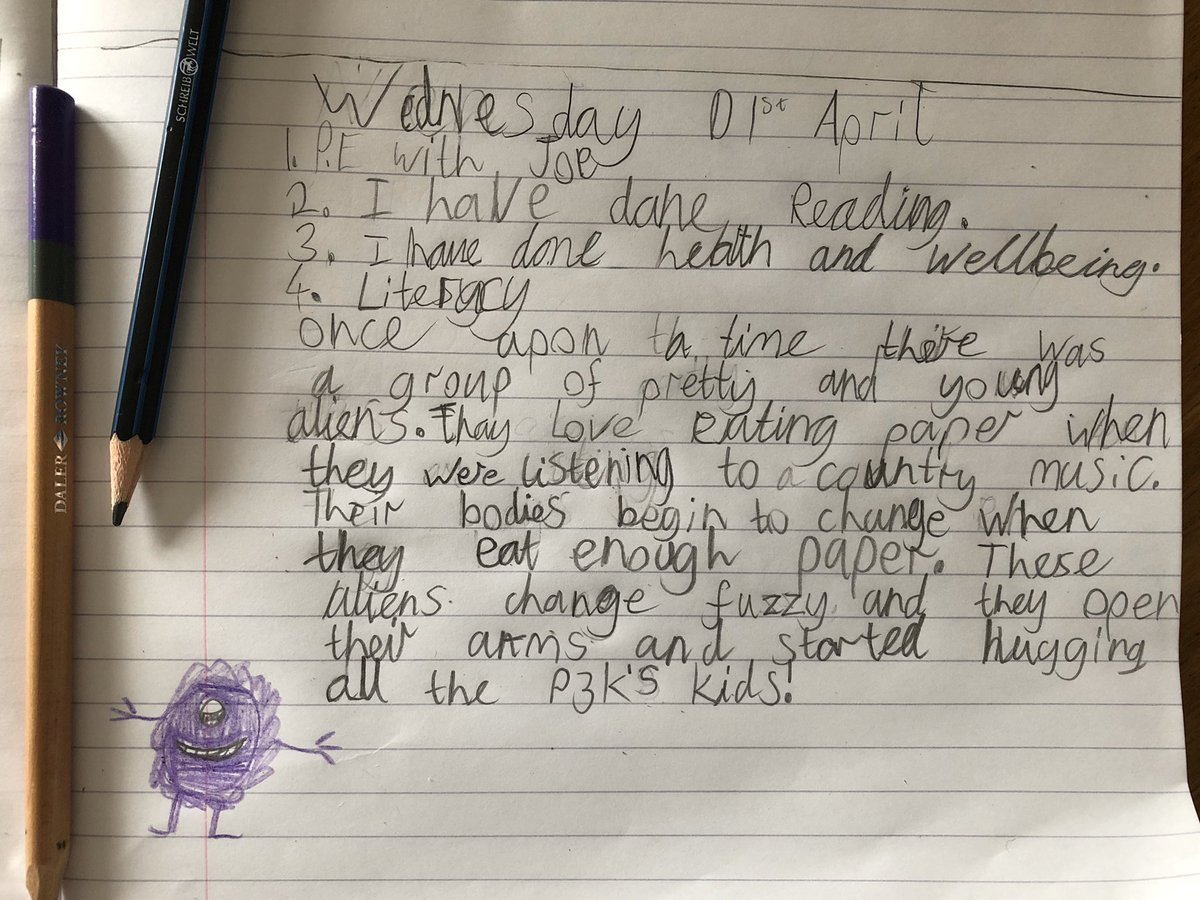 SCHREIB WELT
DALER ROWNEY
Wednesday 01st April
1. P.E with Joe
2. I have done Reading.
3. I have done health and wellbeing.
4. Literacy
once apon th time there was
a group of pretty and young
aliens. Thay Love eating paper when
they were listening to a country music.
Their bodies begin to change when
they eat enough paper. These
aliens change fuzzy and they open
their arms and started hugging
all the P3K's kids!